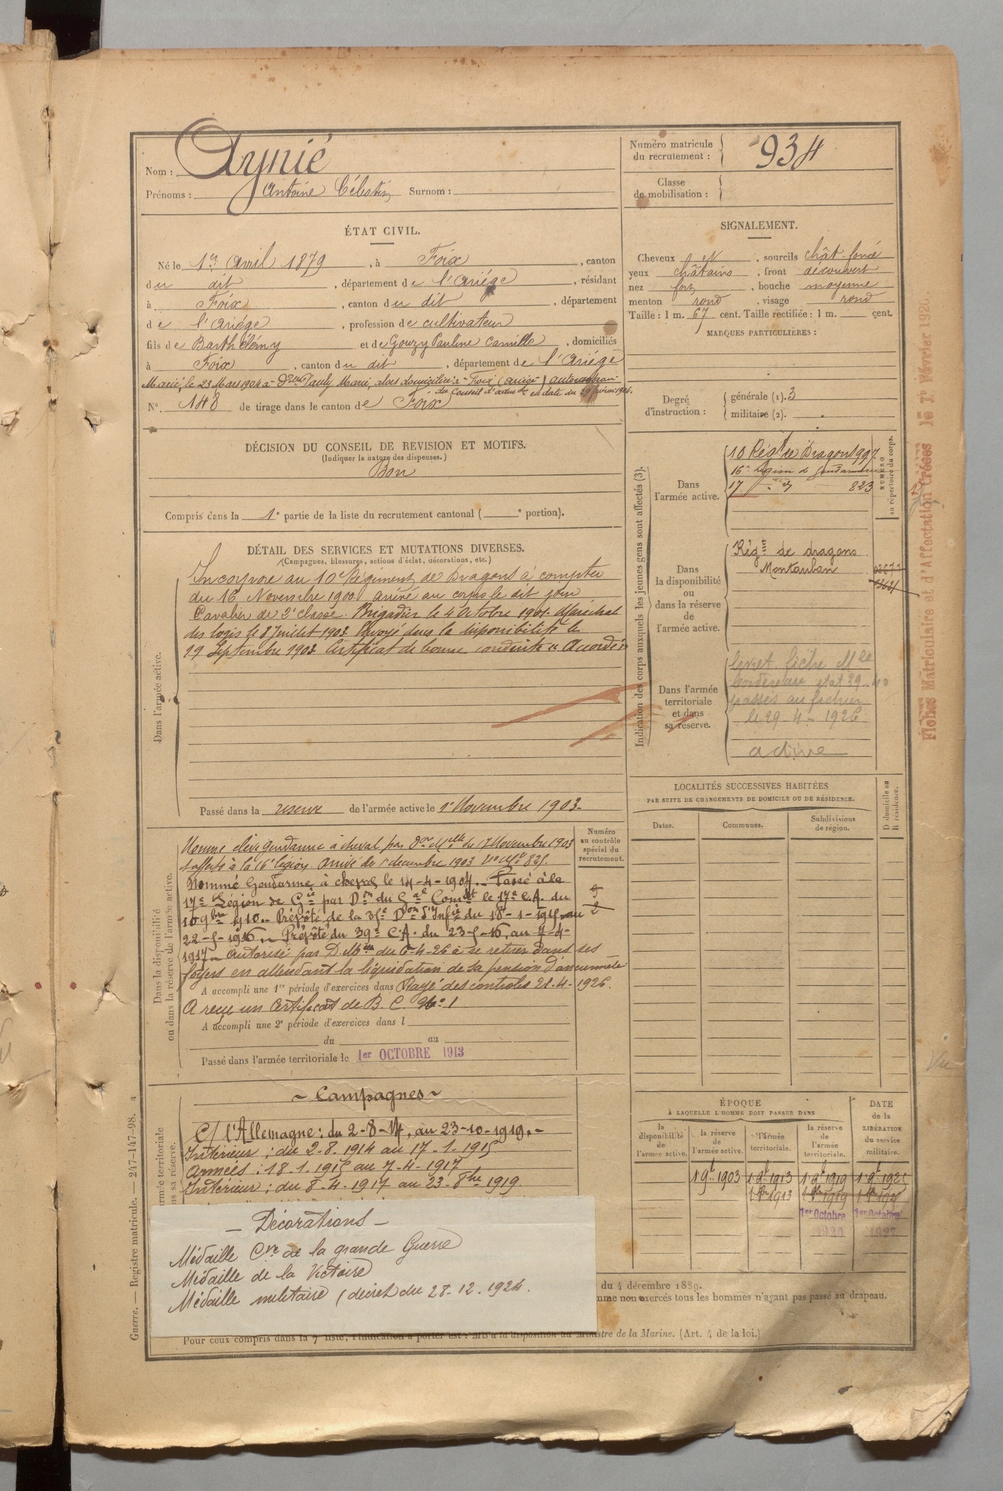 Nom : Aynié
Prénoms : Antoine Célestin Surnom :
Numéro matricule du recrutement : 934
Classe de mobilisation :
ÉTAT CIVIL.
Né le 1er Avril 1879, à Foix, canton
du dit, département de l'Ariège, résidant
à Foix, canton du dit, département
de l'Ariège, profession de cultivateur
fils de Barthélémy et de Gouzy Pauline Camille, domiciliés
à Foix, canton du dit, département de l'Ariège
Marié le 23 Mars 1904 à Dlle Pauly Marie, domiciliée à Foix (Ariège) autorisation
du Conseil d'admon en date du
N° 148 de tirage dans le canton de Foix
SIGNALEMENT.
Cheveux et, sourcils chât. foncé
yeux châtains, front découvert
nez fort, bouche moyenne
menton rond, visage rond
Taille : 1 m. 67 cent. Taille rectifiée : 1 m. cent.
MARQUES PARTICULIÈRES :
Degré d'instruction : générale (1). 3
militaire (2).
DÉCISION DU CONSEIL DE REVISION ET MOTIFS.
(Indiquer la nature des dispenses.)
Bon
Compris dans la 1e partie de la liste du recrutement cantonal ( e portion).
DÉTAIL DES SERVICES ET MUTATIONS DIVERSES.
(Campagnes, blessures, actions d'éclat, décorations, etc.)
Dans l'armée active.
Incorporé au 10e Régiment de Dragons à compter
du 16 Novembre 1900. arrivé au corps le dit jour
Cavalier de 2e classe. Brigadier le 4 Octobre 1901. Maréchal
des logis le 8 Juillet 1903. Envoyé dans la disponibilité le
19 Septembre 1903. Certificat de bonne conduite "Accordé"
Passé dans la réserve de l'armée active le 1er Novembre 1903.
Indication des corps auxquels les jeunes gens sont affectés (3).
Dans l'armée active.
10 Régt de Dragons 997
16e Légion de gendarmerie
17 - d° 823
NUMÉRO au répertoire du corps.
Dans la disponibilité ou dans la réserve de l'armée active.
Régt de dragons
Montauban
Dans l'armée territoriale et dans sa réserve.
livret fiche Mle
bordereau état 29
passés au fichier
le 29-4-1926
active
Fiches Matriculaire et d'Affectation Créées le 1er Février 192
Dans la disponibilité ou dans la réserve de l'armée active.
Numéro au contrôle spécial du recrutement.
Nommé élève gendarme à cheval par Don Mlle du 12 Novembre 1903
et affecté à la 16e légion. Arrivé le 1er décembre 1903
Nommé Gendarme à cheval le 14-4-1904. Passé à la
17e Légion de Gie par Don du Gal Comdt le 17e C.A. du
10 9bre 1910. Prévôté de la 31e Don d'Infie du 18-1-1915 au
22-5-1916. Prévôté du 39e C.A. du 23-5-16, au 7-4-
1917. Autorisé par D. Mle du 6-4-26 à se retirer dans ses
foyers en attendant la liquidation de sa pension d'ancienneté
A accompli une 1re période d'exercices dans Rayé des controles 21-4-1926.
A reçu un certificat de B. C. No 1
A accompli une 2e période d'exercices dans l
du au
Passé dans l'armée territoriale le 1er OCTOBRE 1913
LOCALITÉS SUCCESSIVES HABITÉES
PAR SUITE DE CHANGEMENTS DE DOMICILE OU DE RÉSIDENCE.
Dates. Communes. Subdivisions de région. D domicile ou R résidence.
~ Campagnes ~
C/ l'Allemagne : du 2-8-14, au 23-10-1919.-
Intérieur : du 2.8.1914 au 17-1-1915
Armées : 18-1-1915 au 7-4-1917
Intérieur : du 8-4-1917 au 23-8bre 1919
ÉPOQUE
À LAQUELLE L'HOMME DOIT PASSER DANS
DATE de la LIBÉRATION du service militaire.
la disponibilité de l'armée active. la réserve de l'armée active. l'armée territoriale. la réserve de l'armée territoriale.
1 9bre 1903 1er 8bre 1913
1er Octobre 1er Octobre
- Décorations -
Médaille Cve de la grande Guerre
Médaille de la Victoire
Médaille militaire (décret du 28-12-1924.
du 4 décembre 1889.
mme non exercés tous les hommes n'ayant pas passé au drapeau.
Pour ceux compris dans la 7e liste, l'indication à porter est : Mis à la disposition du Ministre de la Marine. (Art. 4 de la loi.)
Guerre. — Registre matricule. — 247-147-98.